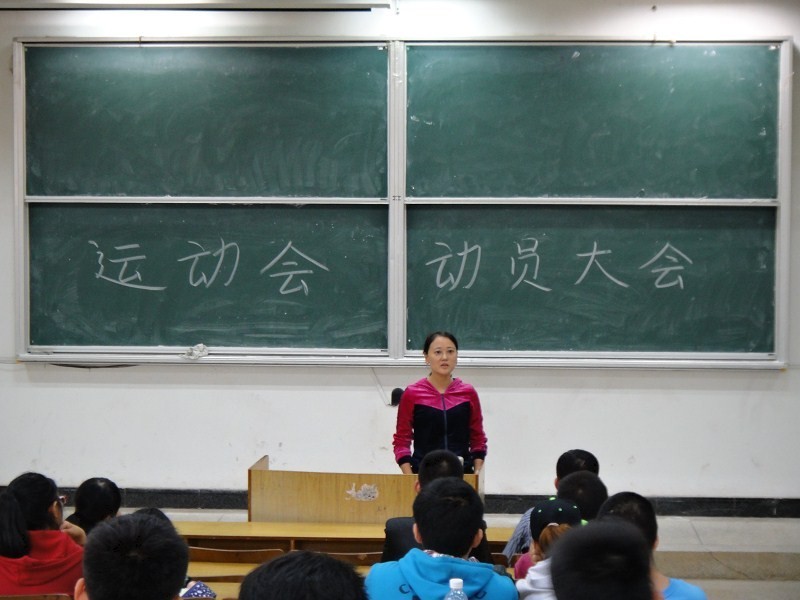 运动会 动员大会